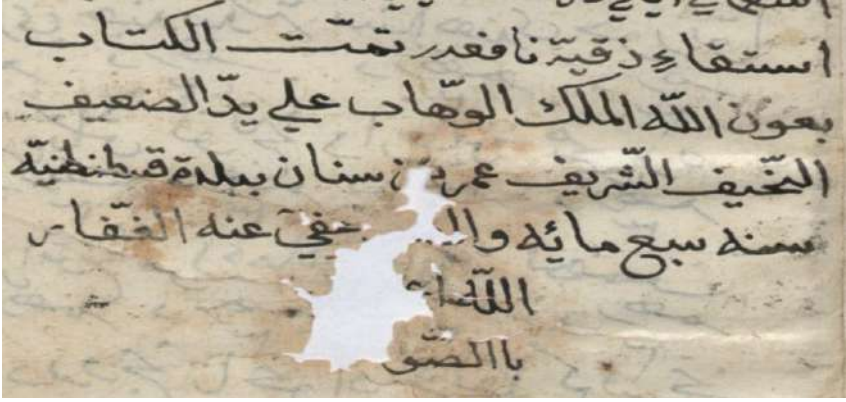 استقاء ذقية نافعدر تمّت الكتاب
بعون اللّه الملك الوهّاب علي يدّ الضعيف
النحّيف الشّريف عمر بن سنان ببلدة قسطنطنيّه
سنه سبع مائه عفي عنه الغفّار
اللّه
باالصّو